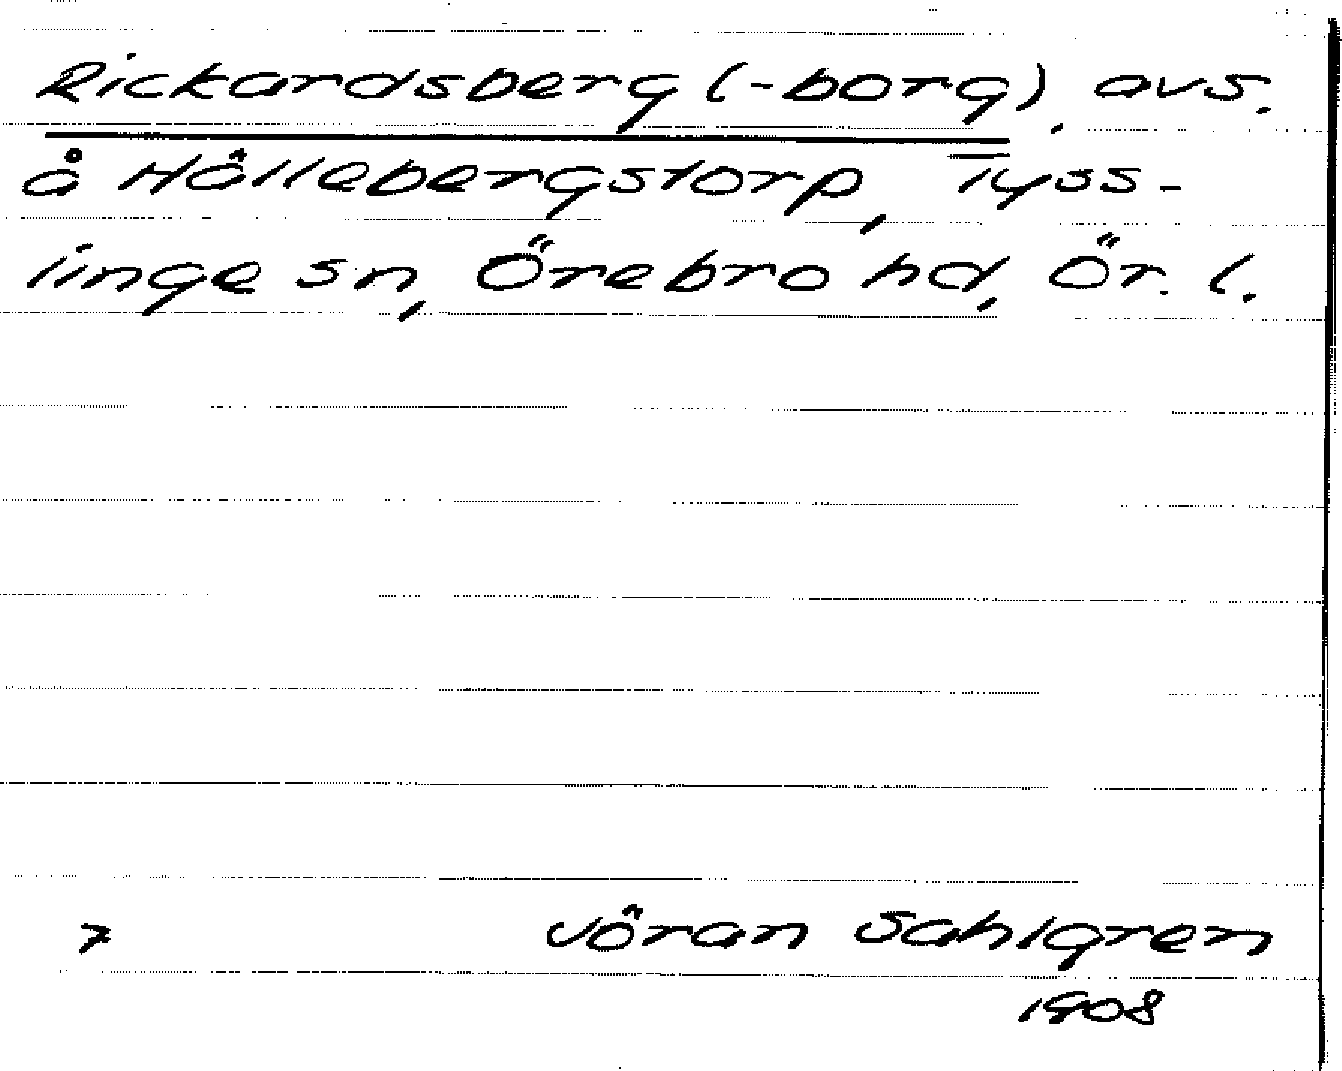 Rickardsberg (-borg), avs.
å Hällebergstorp, Tyss-
linge sn, Örebro hd, Ör. l.
7 Jöran Sahlgren
1908